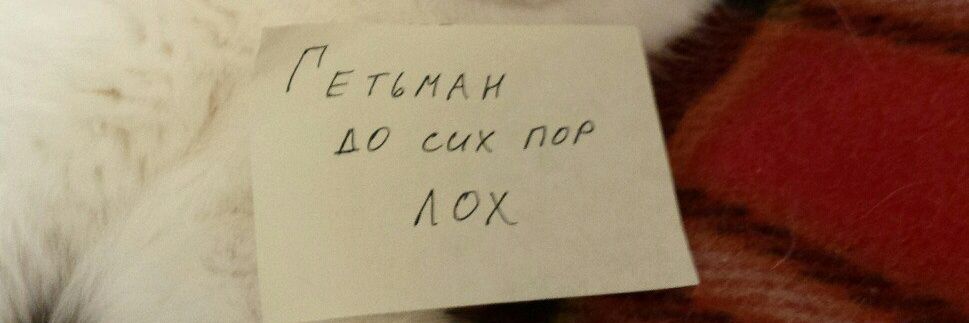 Гетьман
до сих пор
лох